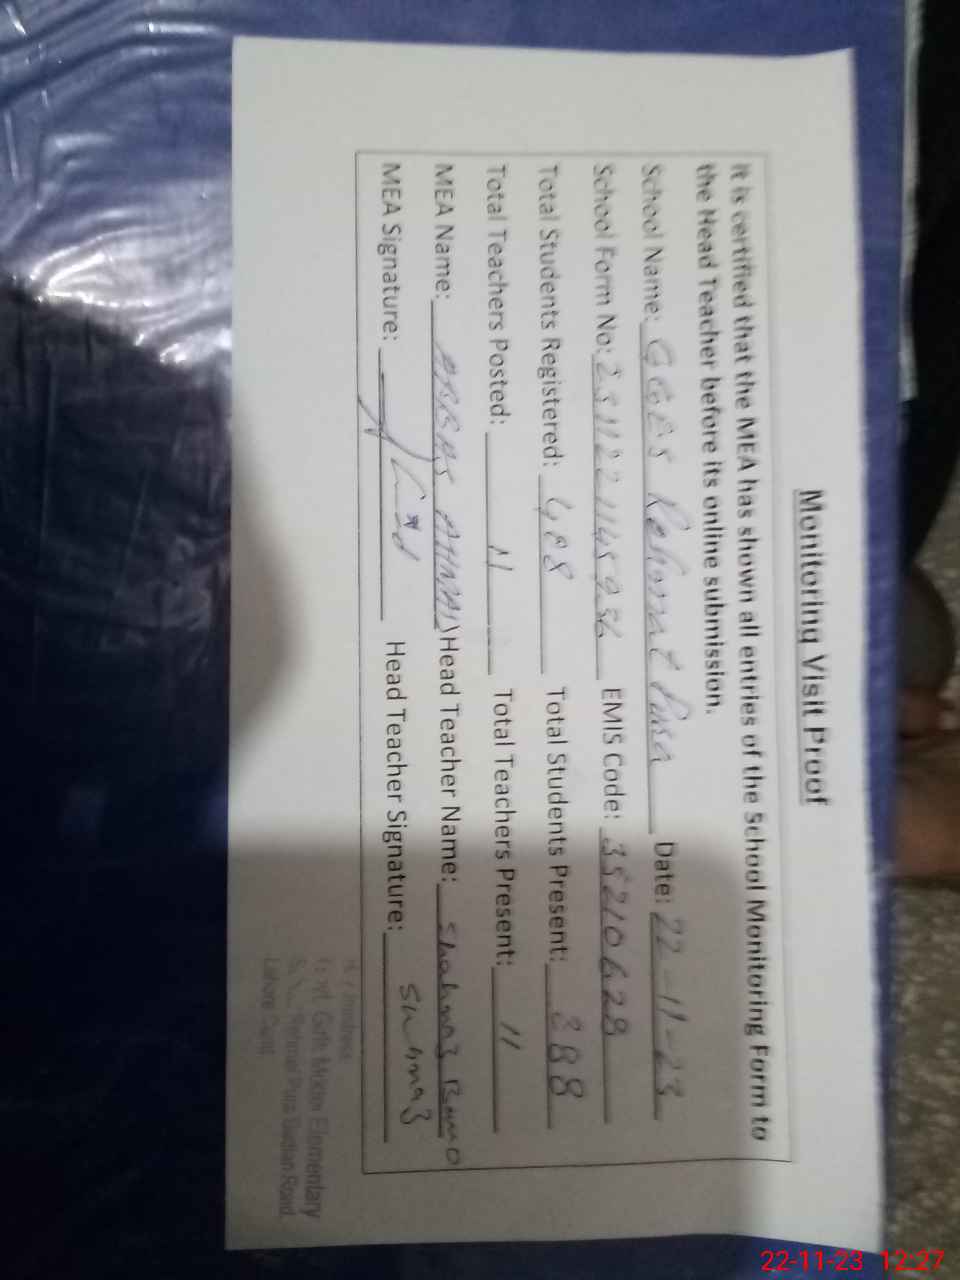 Monitoring Visit Proof
It is certified that the MEA has shown all entries of the School Monitoring Form to
the Head Teacher before its online submission.
School Name: GGES Rehmat Pura Date: 22-11-23
School Form No: EMIS Code: 35210628
Total Students Registered: Total Students Present: 388
Total Teachers Posted: 11 Total Teachers Present: 11
MEA Name: ABBAS Head Teacher Name: Shahnaz Bano
MEA Signature: Head Teacher Signature: Shahnaz
Girls Elementary
Rehmat Pura Road,
Lahore Cantt
22-11-23 12:27